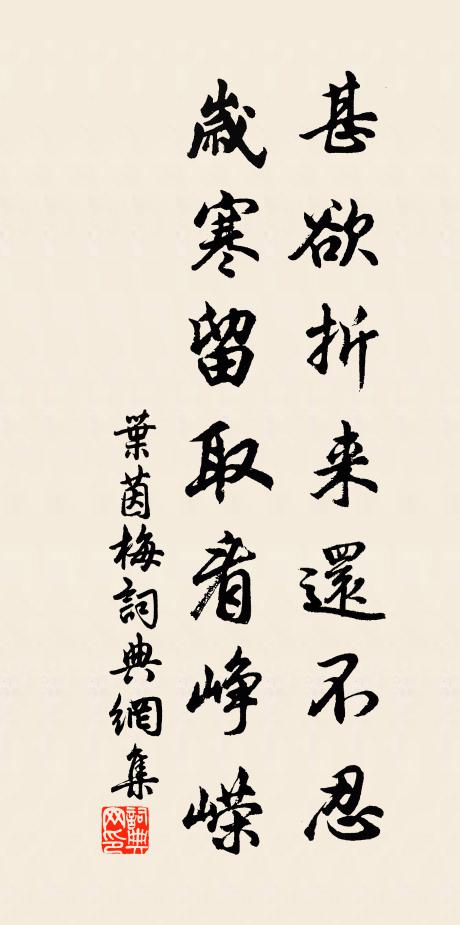 甚欲折来還不忍
歲寒留取看崢嶸
葉茵梅詞典網集
詞典网印